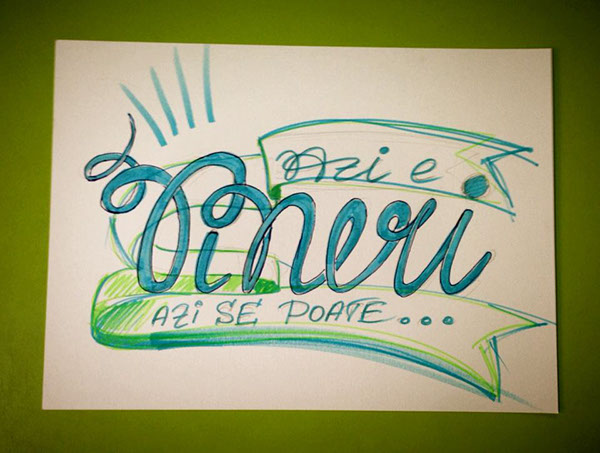 Azi e
Vineri
AZI SE POATE...